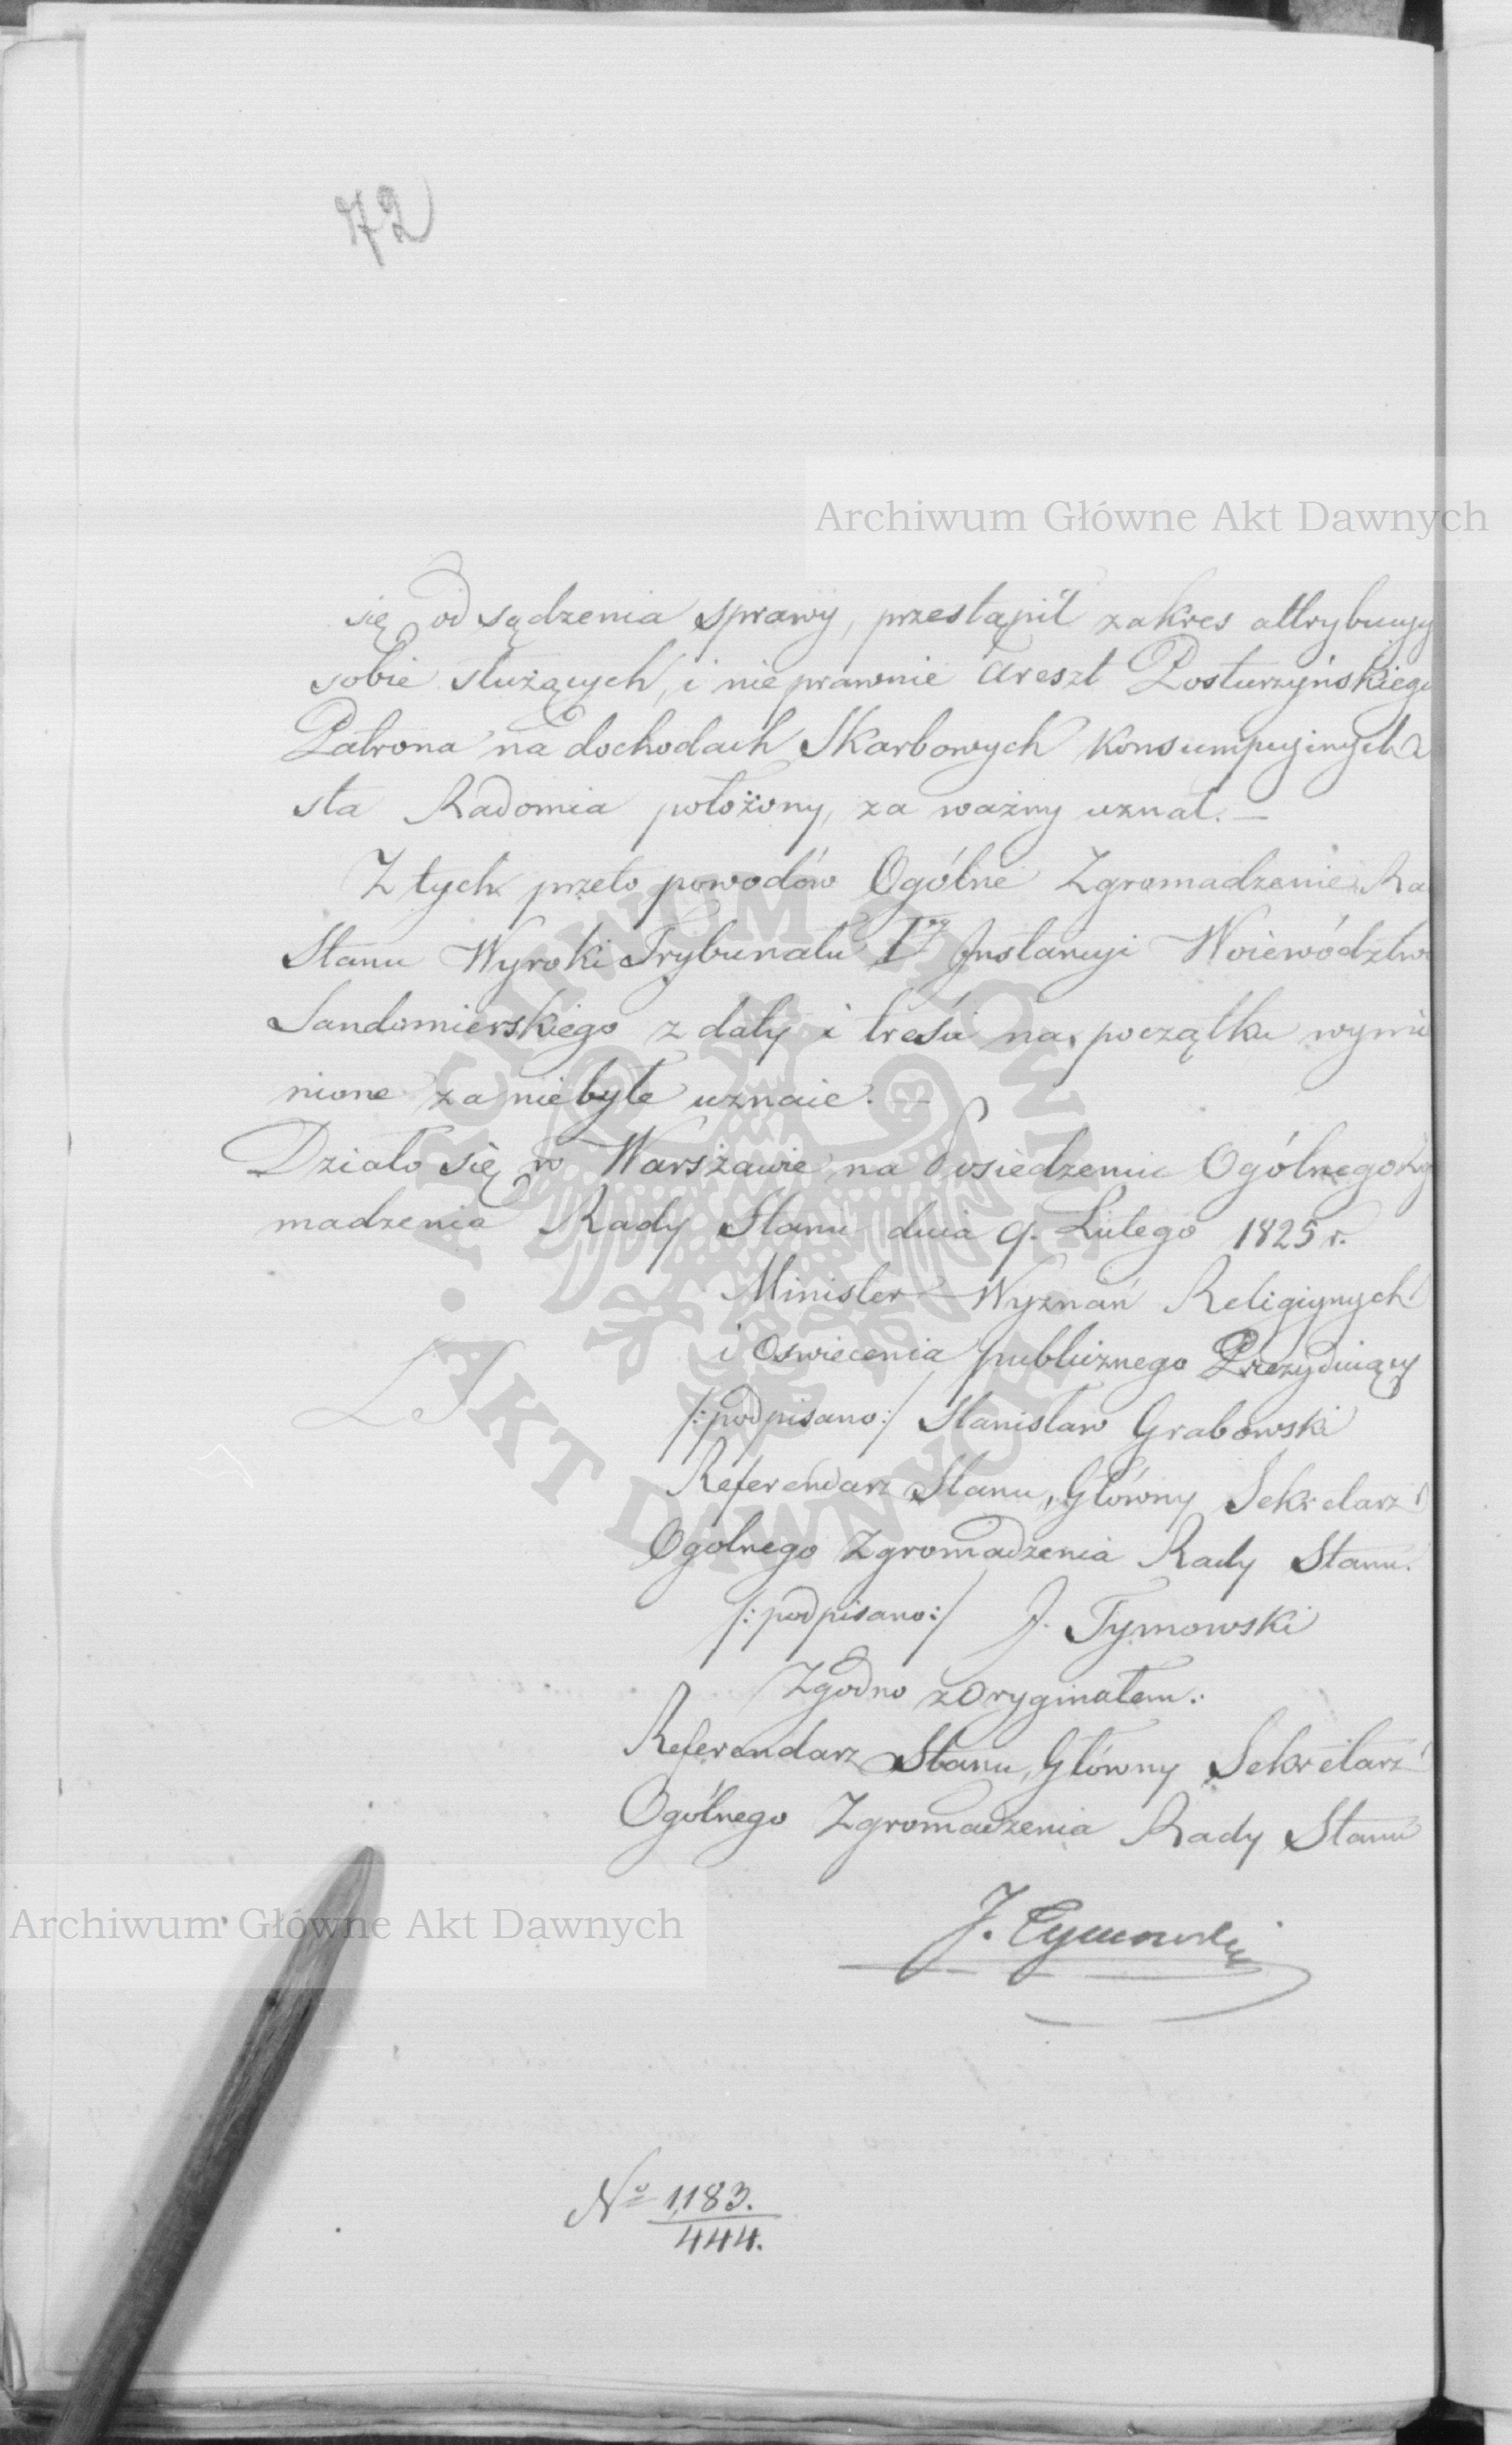 72
Archiwum Główne Akt Dawnych
się od sądzenia sprawy, przestąpił zakres attrybucyy
sobie służących, i nie prawnie areszt Posturzyńskiego
Patrona na dochodach Skarbowych Konsumpcyinych
sta Radomia położony, za ważny uznał. —
Z tych przeto powodów Ogólne Zgromadzenie Ra
Stanu Wyroki Trybunału Iey Instancyi Woiewództwa
Sandomierskiego z daty i treści na początku wymie
nione za niebyłe uznaie. —
Działo się w Warszawie na Posiedzeniu Ogólnego Zg
madzenia Rady Stanu dnia 9. Lutego 1825 r.
Minister Wyznań Religiynych
i Oswiecenia publicznego Prezyduiący
LS
/:podpisano:/ Stanisław Grabowski
Referendarz Stanu, Główny Sekretarz
Ogolnego Zgromadzenia Rady Stanu.
/:podpisano:/ J. Tymowski
Zgodno z Oryginałem:
Referendarz Stanu, Główny Sekretarz
Ogólnego Zgromadzenia Rady Stanu
J. Tymowski
Archiwum Główne Akt Dawnych
No 1183.
444.
ARCHIWUM GŁÓWNE • AKT DAWNYCH •